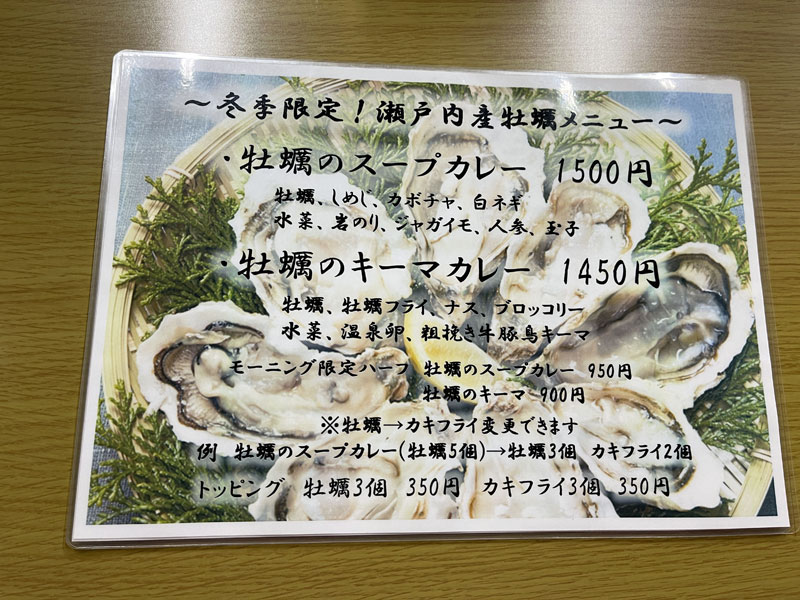 ～冬季限定！瀬戸内産牡蠣メニュー～
・牡蠣のスープカレー 1500円
牡蠣、しめじ、カボチャ、白ネギ
水菜、岩のり、ジャガイモ、人参、玉子
・牡蠣のキーマカレー 1450円
牡蠣、牡蠣フライ、ナス、ブロッコリー
水菜、温泉卵、粗挽き牛豚鳥キーマ
モーニング限定ハーフ 牡蠣のスープカレー 950円
牡蠣のキーマ 900円
※牡蠣→カキフライ変更できます
例 牡蠣のスープカレー(牡蠣5個)→牡蠣3個 カキフライ2個
トッピング 牡蠣3個 350円 カキフライ3個 350円